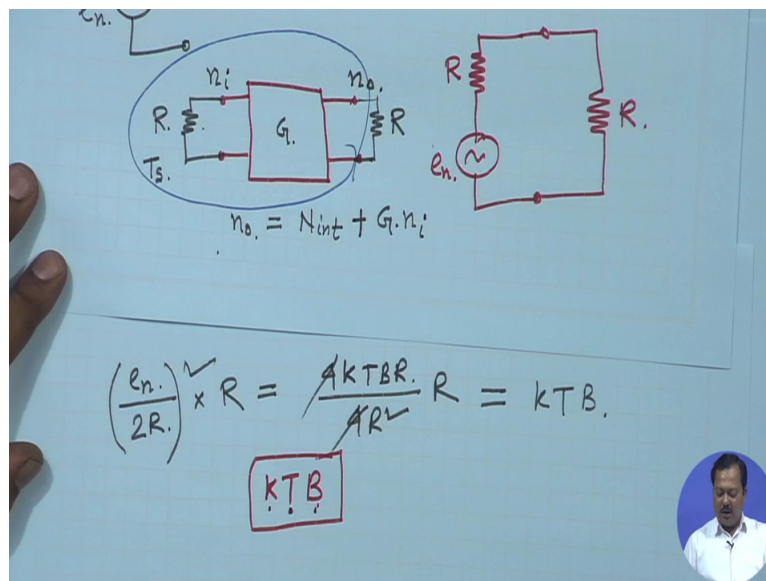 en.
ni
no.
R.
G.
R
Ts.
R
R.
en.
no. = Nint + G.ni
(en./2R.)² × R = 4KTBR./4R² R = KTB.
KTB